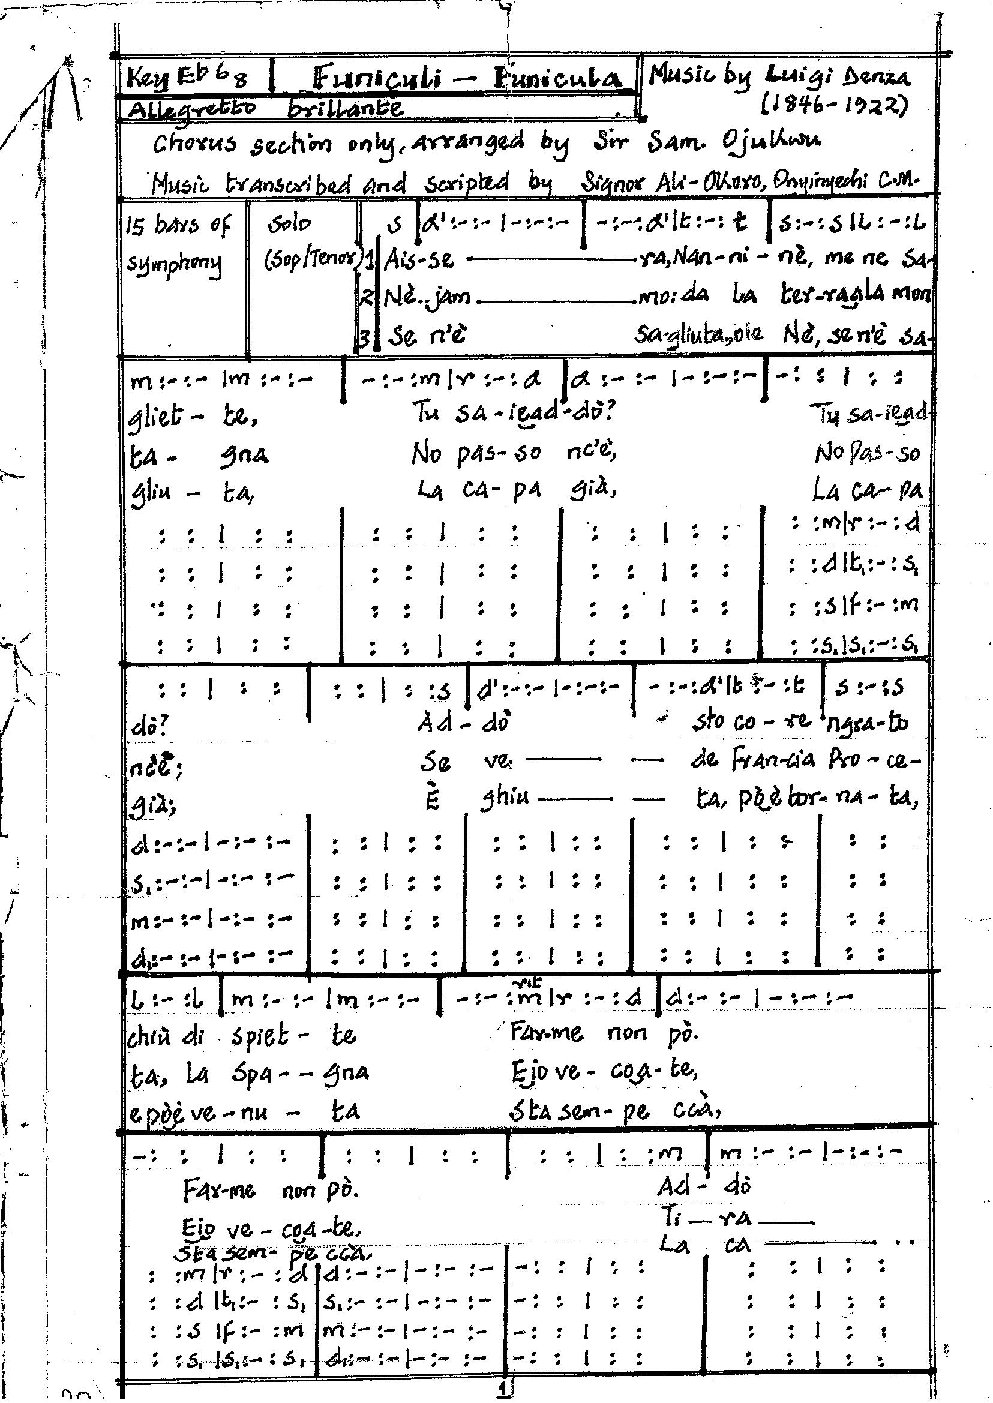 Key Eb 6 8 | Funiculi – Funicula | Music by Luigi Denza
Allegretto brillante (1846-1922)
Chorus section only, arranged by Sir Sam. Ojukwu
Music transcribed and scripted by Signor Alu-Okoro, Onyinyechi C.M.
15 bars of | Solo | s | d':-:- | -:-:- | -:-:d' | t:-:t | s:-:s | l:-:l
symphony | (Sop/Tenor) 1 Ais-se ——— ra, Nan-ni-nè, me ne sa-
2 Nè.. jam ——— mo: da la ter-ra a la mon
3 Se n'è sa-gliuta, oie Nè, se n'è sa-
m:-:- | m:-:- | -:-:m | r:-:d | d:-:- | -:-:- | -: : | : :
gliet - te, Tu sa-iead-dò? Tu sa-iead
ta - gna No pas-so nc'è, No Pas-so
gliu - ta, La ca-pa già, La ca-pa
: : | : : | : : | : : | : : | : : | : :m | r:-:d
: : | : : | : : | : : | : : | : : | : :d | t₁:-:s₁
: : | : : | : : | : : | : : | : : | : :s | f:-:m
: : | : : | : : | : : | : : | : : | : :s₁ | s₁:-:s₁
: : | : : | : : | : :s | d':-:- | -:-:- | -:-:d' | t:-:t | s:-:s
dò? Àd-dò sto co-re 'ngra-to
ncè; Se ve ——— — de Fran-cia Pro-ce-
già; È ghiu ——— — ta, pòè tor-na-ta,
d:-:- | -:-:- | : : | : : | : : | : : | : : | : : | : :
s₁:-:- | -:-:- | : : | : : | : : | : : | : : | : : | : :
m:-:- | -:-:- | : : | : : | : : | : : | : : | : : | : :
d₁:-:- | -:-:- | : : | : : | : : | : : | : : | : : | : :
rit
l:-:l | m:-:- | m:-:- | -:-:m | r:-:d | d:-:- | -:-:-
chiù di spiet - te Far-me non pò.
ta, La Spa - - gna Ejo ve-coa-te,
e pòè ve-nu - ta Sta sem-pe ccà,
-: : | : : | : : | : : | : : | : :m | m:-:- | -:-:-
Far-me non pò. Ad - dò
Ejo ve-coa-te, Ti — ra ——
Sta sem-pe ccà, La ca ———
: :m | r:-:d | d:-:- | -:-:- | -: : | : : | : : | : :
: :d | t₁:-:s₁ | s₁:-:- | -:-:- | -: : | : : | : : | : :
: :s | f:-:m | m:-:- | -:-:- | -: : | : : | : : | : :
: :s₁ | s₁:-:s₁ | d₁:-:- | -:-:- | -: : | : : | : : | : :
1